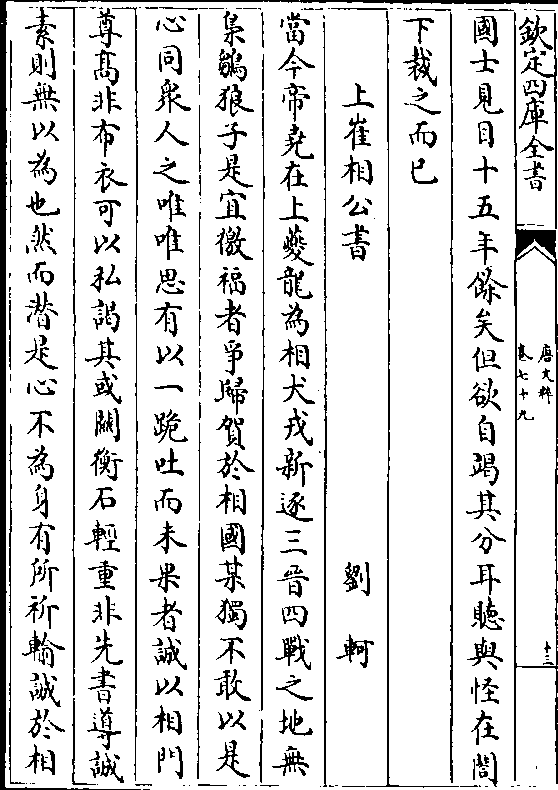 欽定四庫全書
唐文粹
卷七十九
十三
國士見目十五年餘矣但欲自竭其分耳聽與怪在閤
下裁之而已
上崔相公書 劉軻
當今帝堯在上夔龍為相犬戎新逐三晉四戰之地無
梟雛狼子是宜徼福者爭歸賀於相國某獨不敢以是
心同衆人之唯唯思有以一跪吐而未果者誠以相門
尊髙非布衣可以私謁其或關衡石輕重非先書導誠
素則無以為也然而潛是心不為身有所祈輸誠於相